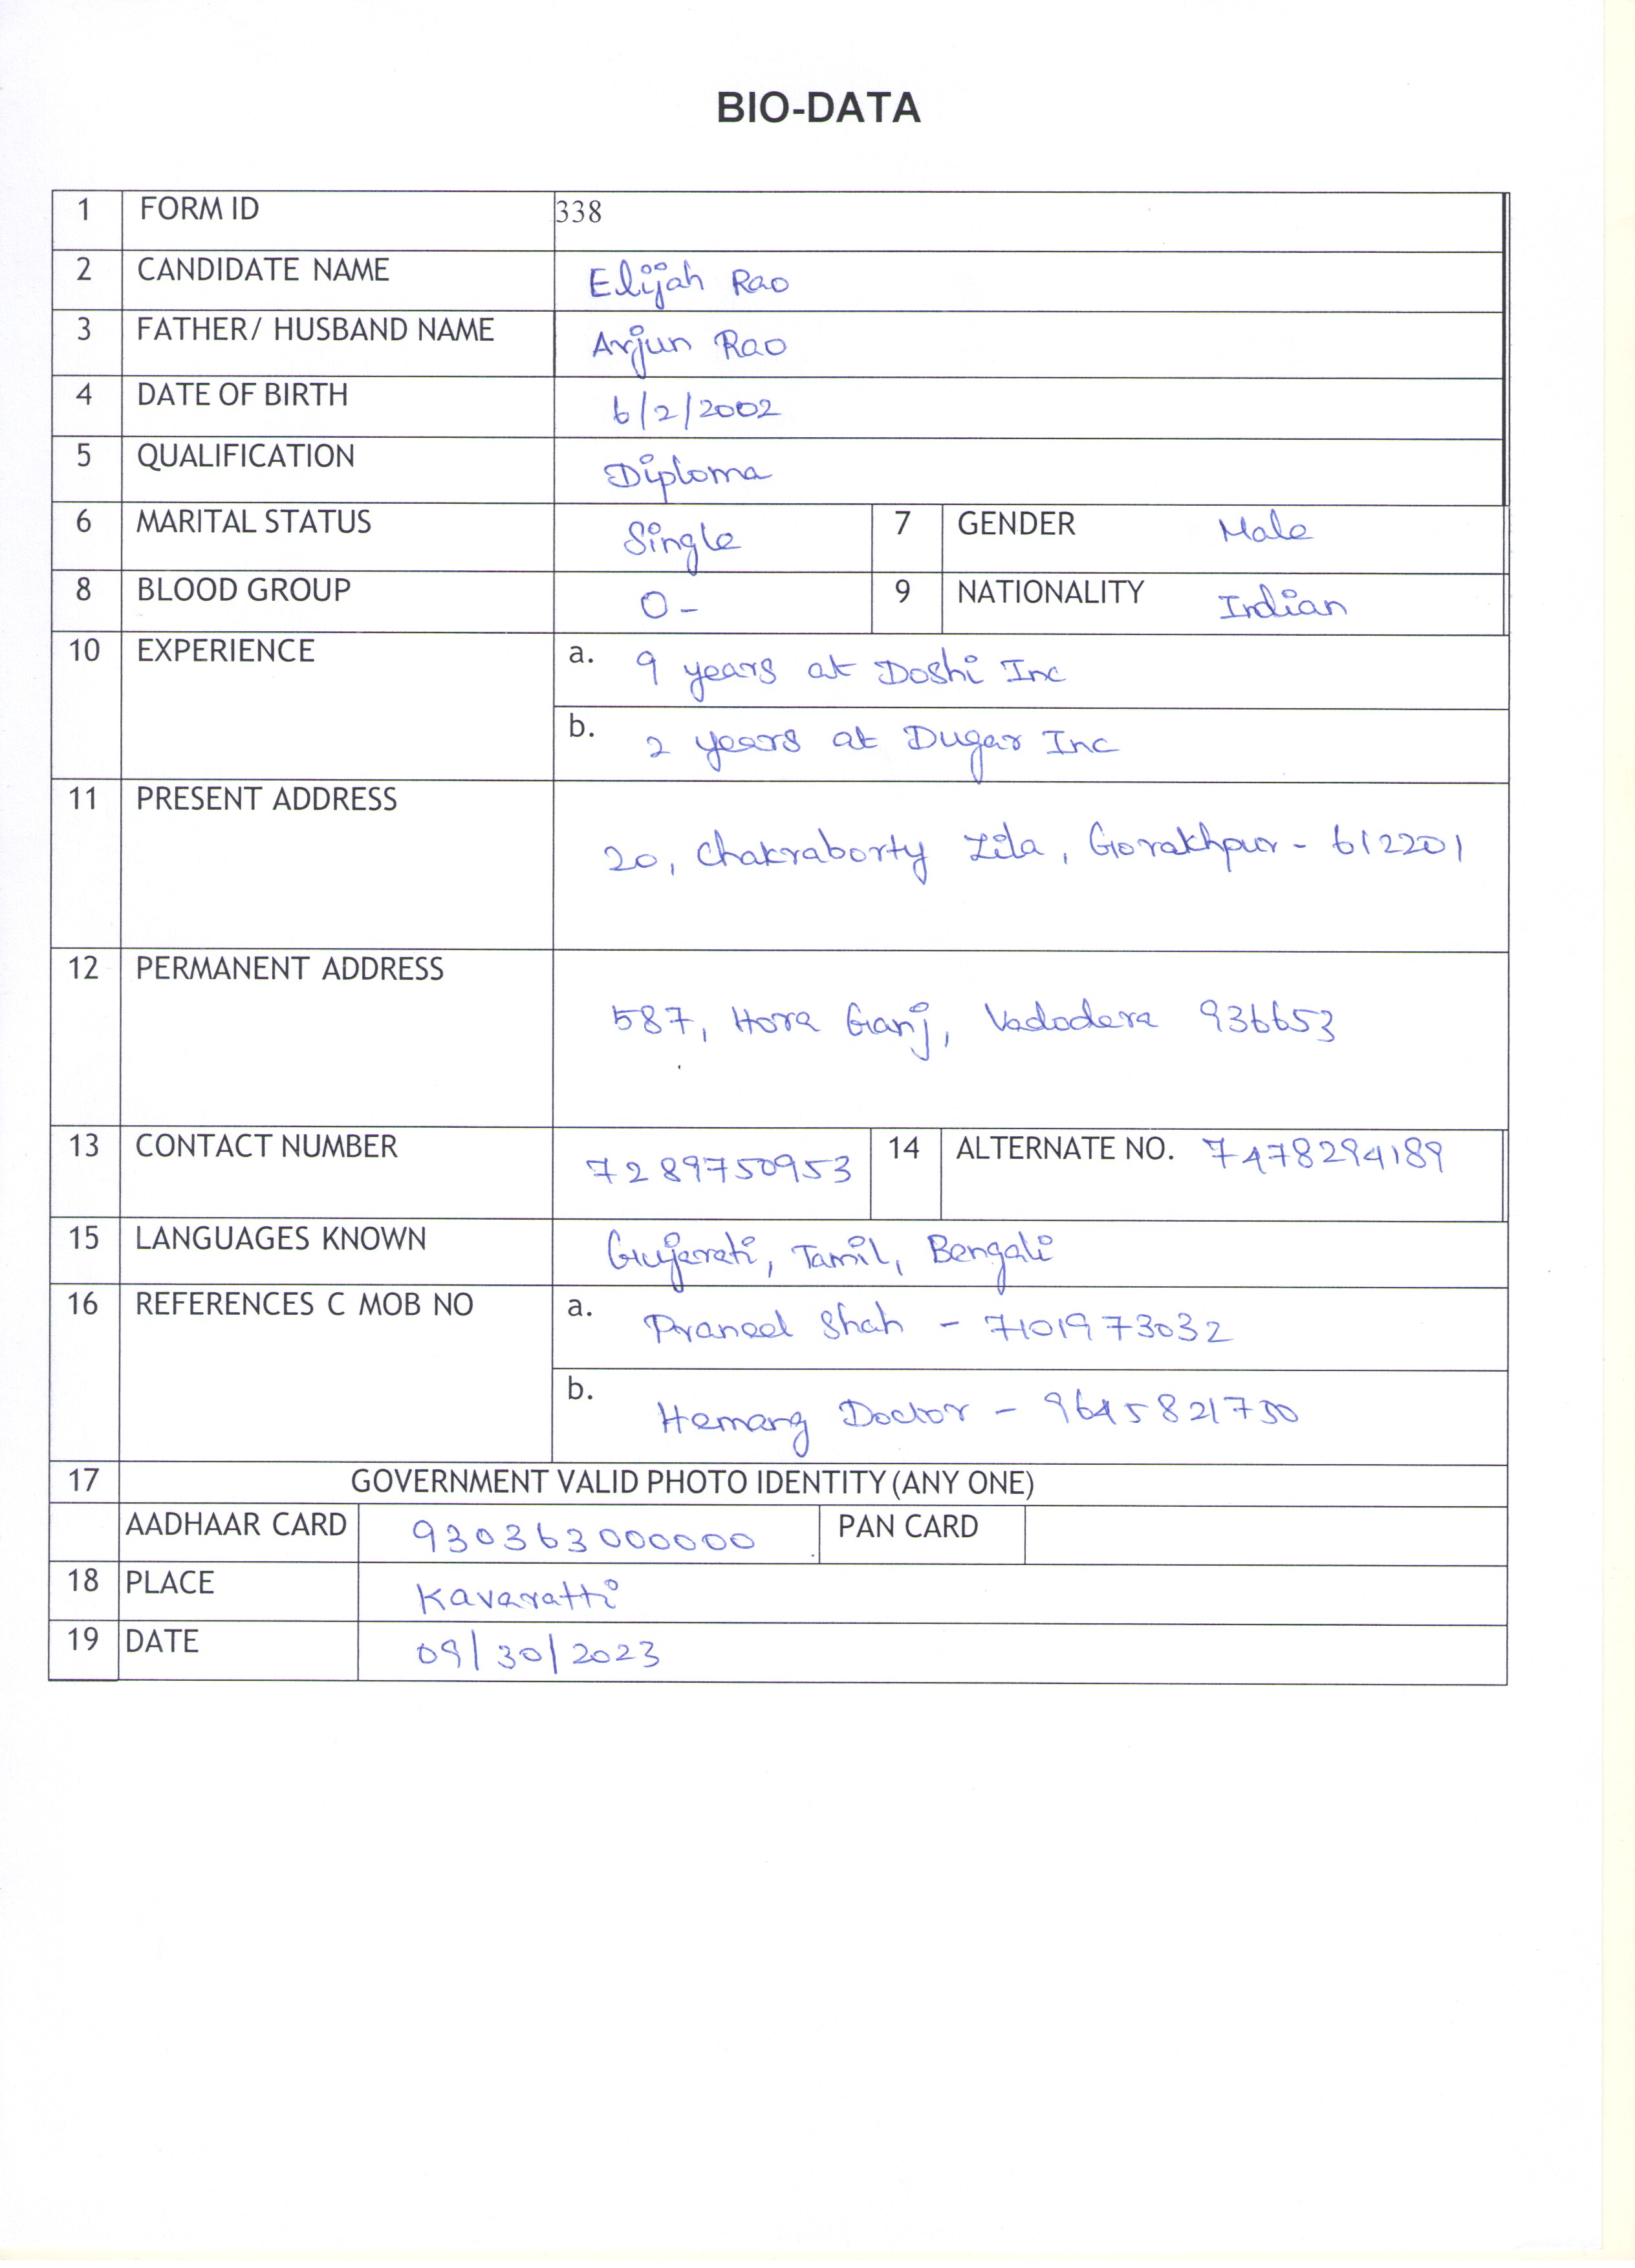 BIO-DATA
1 FORM ID 338
2 CANDIDATE NAME Elijah Rao
3 FATHER/ HUSBAND NAME Arjun Rao
4 DATE OF BIRTH 6/2/2002
5 QUALIFICATION Diploma
6 MARITAL STATUS Single 7 GENDER Male
8 BLOOD GROUP O- 9 NATIONALITY Indian
10 EXPERIENCE a. 9 years at Doshi Inc
b. 2 years at Dugar Inc
11 PRESENT ADDRESS
20, Chakraborty Zila, Gorakhpur - 612201
12 PERMANENT ADDRESS
587, Hora Ganj, Vadodara 936653
13 CONTACT NUMBER 7289750953 14 ALTERNATE NO. 7478294189
15 LANGUAGES KNOWN Gujarati, Tamil, Bengali
16 REFERENCES C MOB NO a. Praneel Shah - 7101973032
b. Hemang Doctor - 9645821730
17 GOVERNMENT VALID PHOTO IDENTITY (ANY ONE)
AADHAAR CARD 930363000000 PAN CARD
18 PLACE Kavaratti
19 DATE 09/30/2023